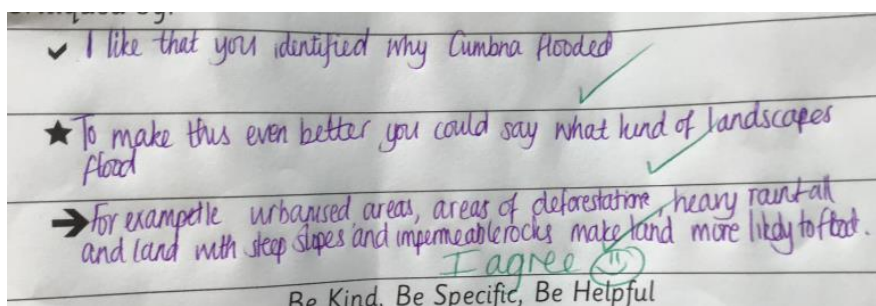 I like that you identified why Cumbria flooded
To make this even better you could say what kind of landscapes
flood
For exampetle urbanised areas, areas of deforestatione, heavy rainfall
and land with steep slopes and impermeable rocks make land more likely to flood.
I agree
Be Kind, Be Specific, Be Helpful